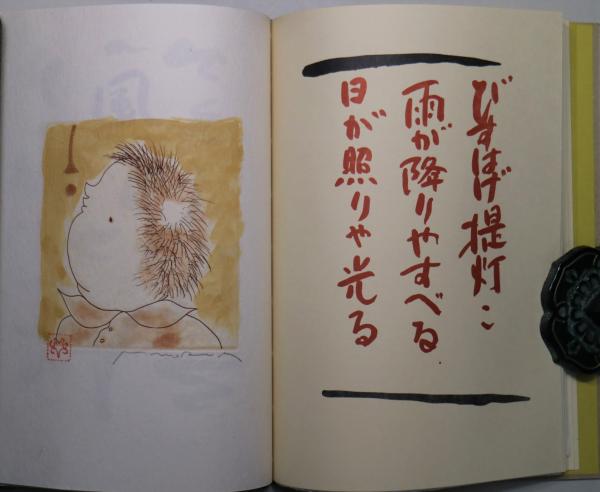 びすはげ提灯こ
雨が降りやすべる
日が照りや光る